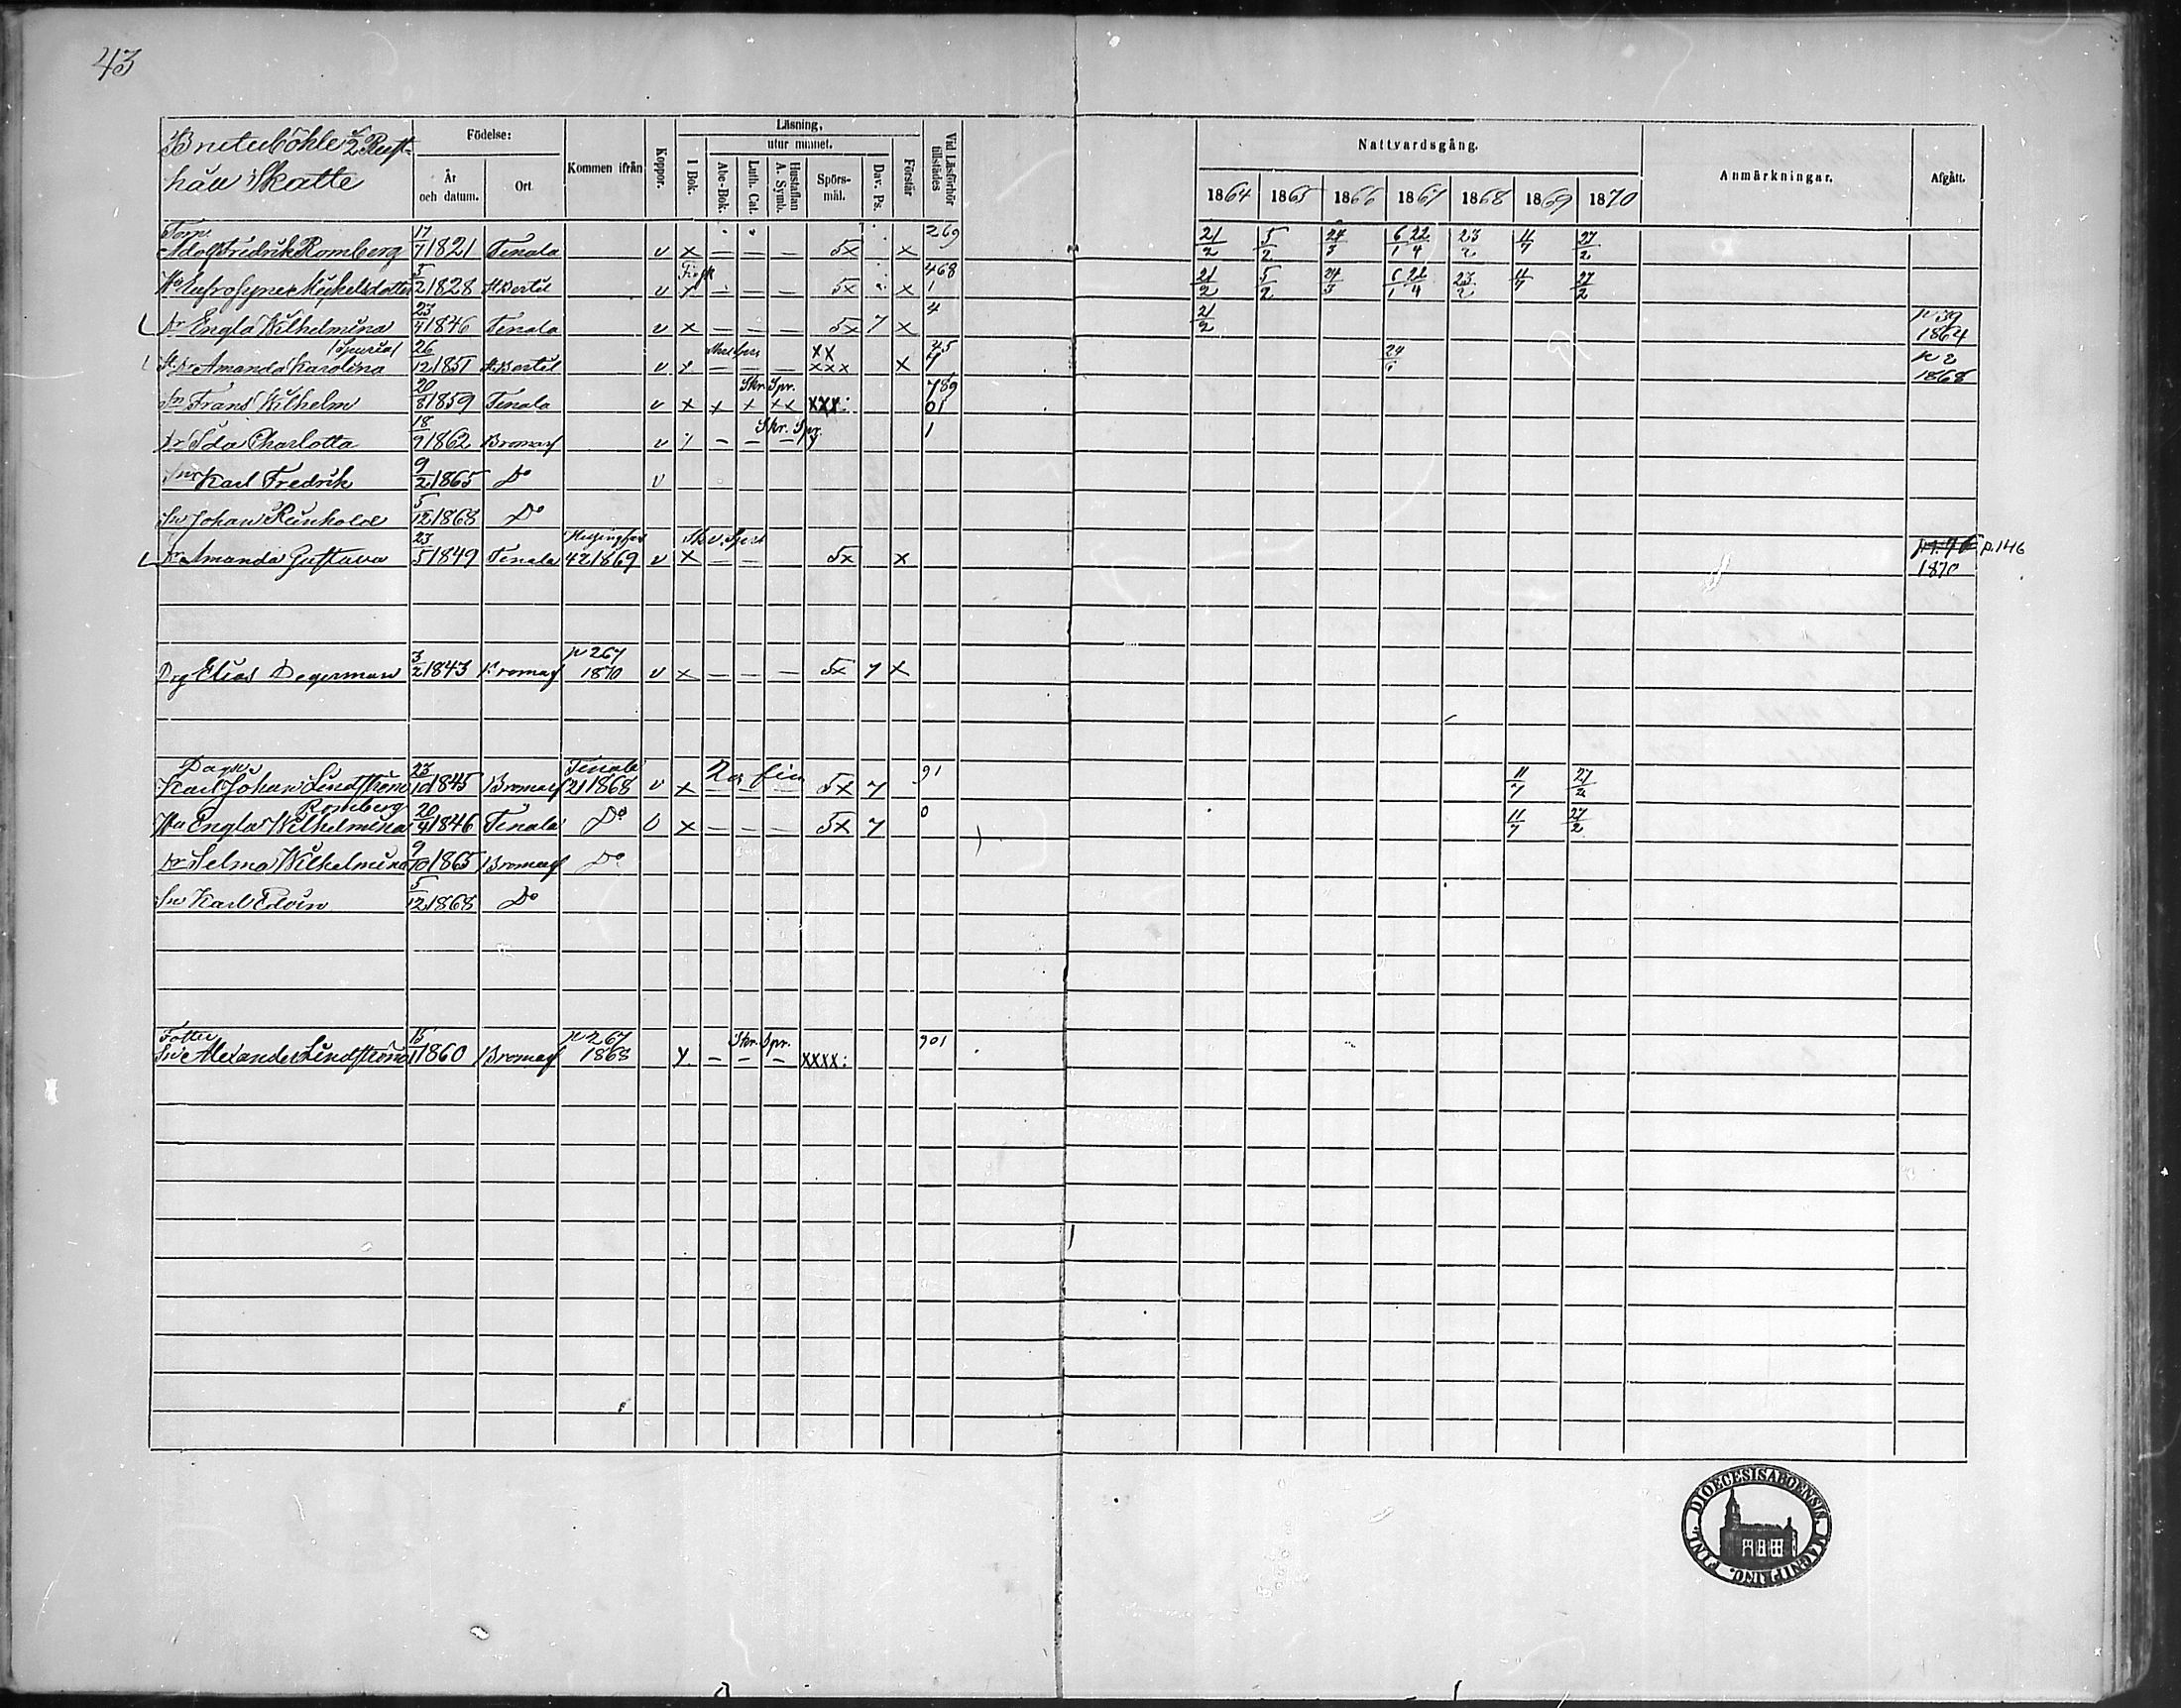 43
Födelse:
Läsning,
utur minnet.
Nattvardsgång.
håll Skatte
År och datum.
Ort
Kommen ifrån
Koppor.
I Bok.
Abc-Bok.
Luth. Cat.
Hustaflan A. Symb.
Spörsmål.
Dav. Ps.
Förstår
Vid Läsförhör tillstädes
1864 1865 1866 1867 1868 1869 1870
Anmärkningar.
Afgått.
Torp.
Adolf Fredrik Romberg 17/7 1821 Tenala v x — — — 5x x 269 21/2 5/2 24/3 6/1 22/4 23/2 11/7 27/2
Mickelsdotter 5/2 1828 v — — — 5x x 468 1 21/2 5/2 24/3 6/1 22/4 23/2 11/7 27/2
Dr Engla Wilhelmina 23/4 1846 Tenala v x — — — 5x 7 x 4 21/2 p 39 1864
Amanda Karolina 26/12 1851 v — — — xx xxx x p 2 1868
Sn Frans Wilhelm 20/8 1859 Tenala v x x x xx Skr. Spr. xxx: 789 01
Dr Ida Charlotta 18/9 1862 Bromarf v — — — Skr. Spr. 1
Karl Fredrik 9/2 1865 Do v
Sn Johan Reinhold 5/12 1868 Do
Dr Amanda Gustava 23/5 1849 Tenala Helsingfors 4 2 1869 v x — — 5x x p.146 1870
Drg Elias Degerman 3/2 1843 Bromarf p 267 1870 v x — — — 5x 7 x
Karl Johan Lindström 23/10 1845 Bromarf Tenala 21 1868 v x — — — 5x 7 91 11/7 27/2
Romberg
Hu Engla Wilhelmina 20/4 1846 Tenala Do v x — — — 5x 7 0 11/7 27/2
Dr Selma Wilhelmina 9/10 1865 Bromarf Do
Sn Karl Edvin 5/12 1868 Do
Alexander Lindström 1860 Bromarf p 267 1868 — — — Skr. Spr. xxxx: 901
FINL. DIOECESIS ABOENSIS. MAGNI PRINC.